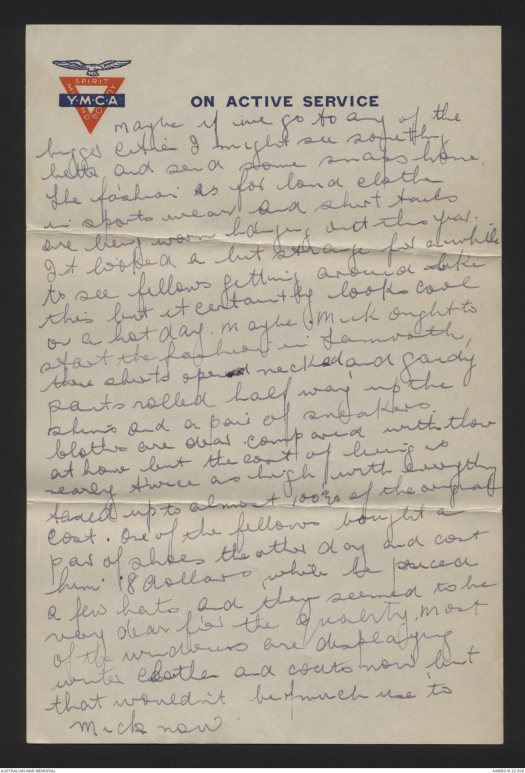 SPIRIT
MIND BODY
Y·M·C·A
ON ACTIVE SERVICE
Maybe if we go to any of the
bigger cities I might see something
better and send some snaps home.
The fashion as for loud clothes
in sports wear and shirt tails
are being worn hanging out this year.
It looked a bit strange for awhile
to see fellows getting around like
this but it certaintly looks cool
on a hot day. Maybe Mick ought to
start the fashion in Tamworth,
these shirts opened necked and gaudy
pants rolled half way up the
shins and a pair of sneakers.
Cloths are dear compared with those
at home but the cost of living is
nearly twice as high, with everything
taxed up to almost 100% of the original
cost. One of the fellows bought a
pair of shoes the other day and cost
him 18 dollars while he priced
a few hats and they seemed to be
very dear for the quality. Most
of the windows are displaying
winter clothes and coats now but
that wouldn't be much use to
Mick now.
AUSTRALIAN WAR MEMORIAL